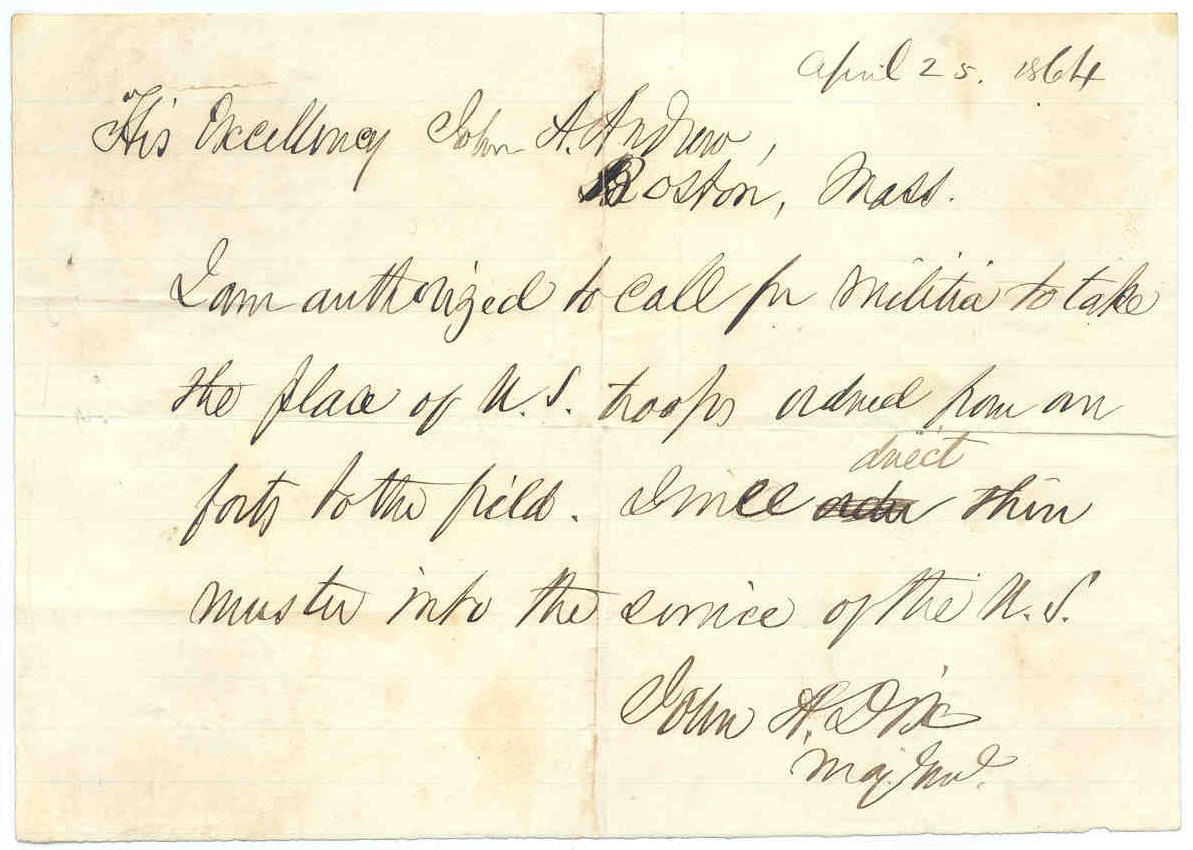 April 25. 1864
His Excellency John A. Andrew,
Boston, Mass.
I am authorized to call for militia to take
the place of U.S. troops ordered from our
direct
forts to the field. I will order their
muster into the service of the U.S.
John A. Dix
Maj. Genl.